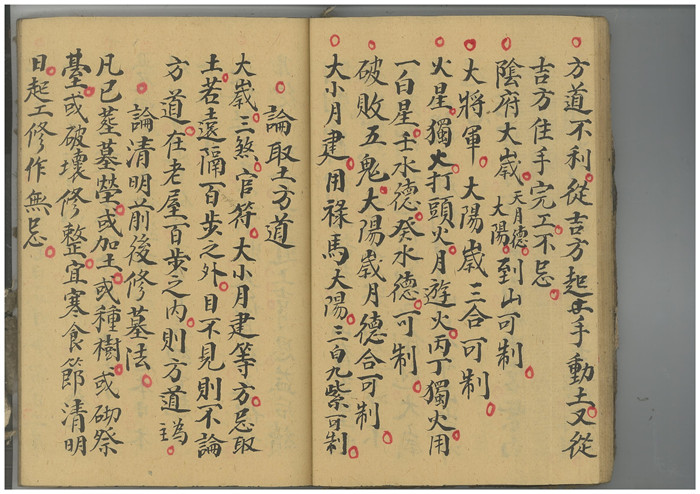 方道不利從吉方起手動土又從
吉方住手完工不忌
陰府大歲天月德大陽到山可制
大將軍大陽歲三合可制
火星獨火打頭火月遊火丙丁獨火用
一白星壬水德癸水德可制
破敗五鬼大陽歲月德合可制
大小月建用祿馬大陽三白九紫可制
論取土方道
大歲三煞官符大小月建等方忌取
土若遠隔百步之外目不見則不論
方道在老屋百步之內則方道
論清明前後修墓法
凡已塟墓塋或加土或種樹或砌祭
臺或破壞修整宜寒食節清明
日起工修作無忌